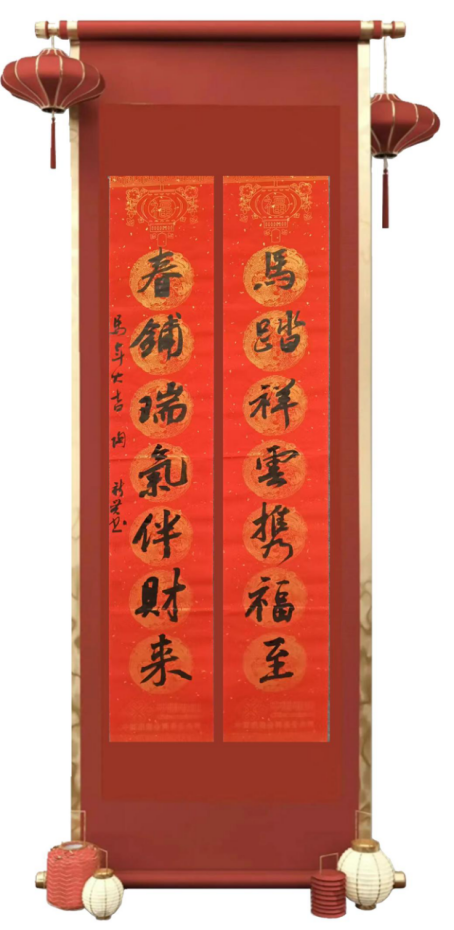 馬踏祥雲携福至
春鋪瑞氣伴財来
馬年大吉 陶